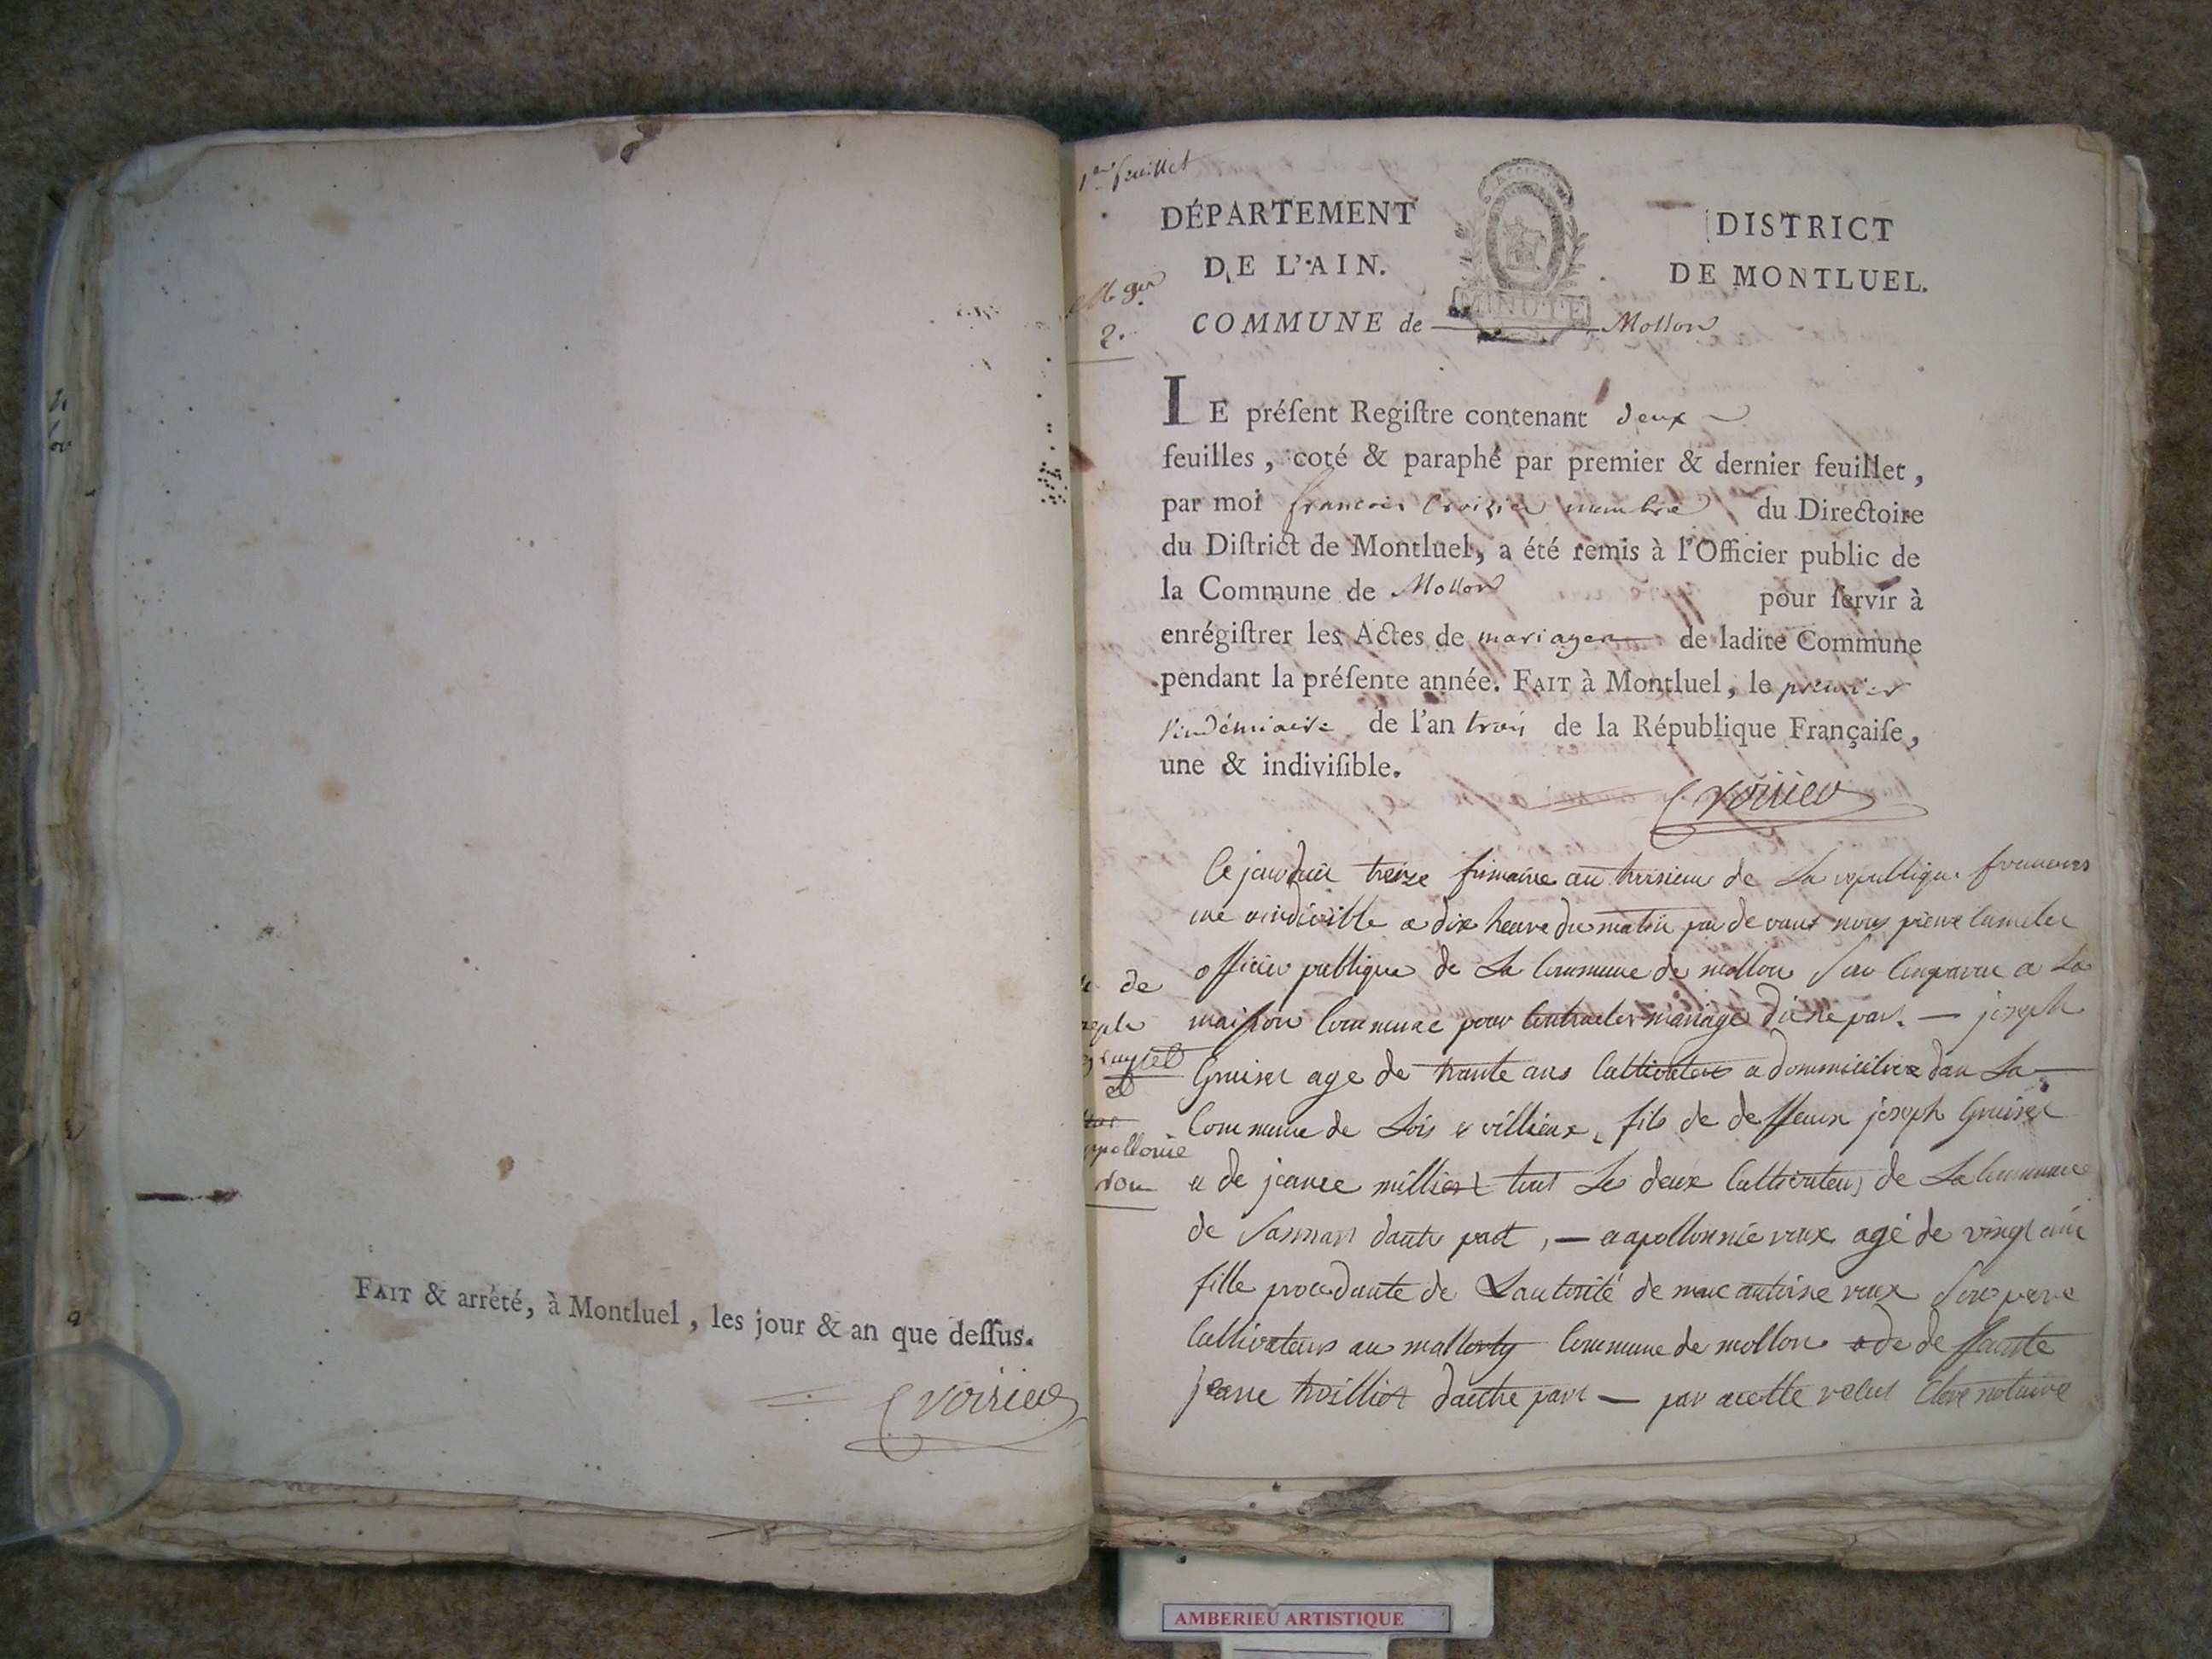 FAIT & arrêté, à Montluel, les jour & an que deſſus.
1er feuillet
DÉPARTEMENT
DE L'AIN.
DISTRICT
DE MONTLUEL.
MINUTE
2.
COMMUNE de Mollon
LE préſent Regiſtre contenant deux
feuilles, coté & paraphé par premier & dernier feuillet,
par moi francois Croizier membre du Directoire
du Diſtrict de Montluel, a été remis à l'Officier public de
la Commune de Mollon pour ſervir à
enrégiſtrer les Actes de mariages de ladite Commune
pendant la préſente année. FAIT à Montluel, le premier
Vindémiaire de l'an trois de la République Françaiſe,
une & indiviſible.
Ce jourduit treize frimaire an troisieme de La republique francoies
une a indivisible a dix heure du matin par de vant nous pierre
officier publique de La Commune de mollon Son Comparue a La
maison Commune pour Contracter mariage dune par. — joseph
Gruisel age de trante ans Cultivateur a domicilie dan La
Commune de Lois & villieux, fils de deffeunt joseph Gruisel
a de jeanne millieret tout Les deux Cultivateurs de La Commune
de dautre part, — a apollonnie roux agé de vingt
fille procedante de Lautorité de marc antoine roux Son pere
Cultivateur au Commune de mollon a de deffeunte
jeanne troilliet dautre part — par acette notaire
de
apollonie
AMBERIEU ARTISTIQUE